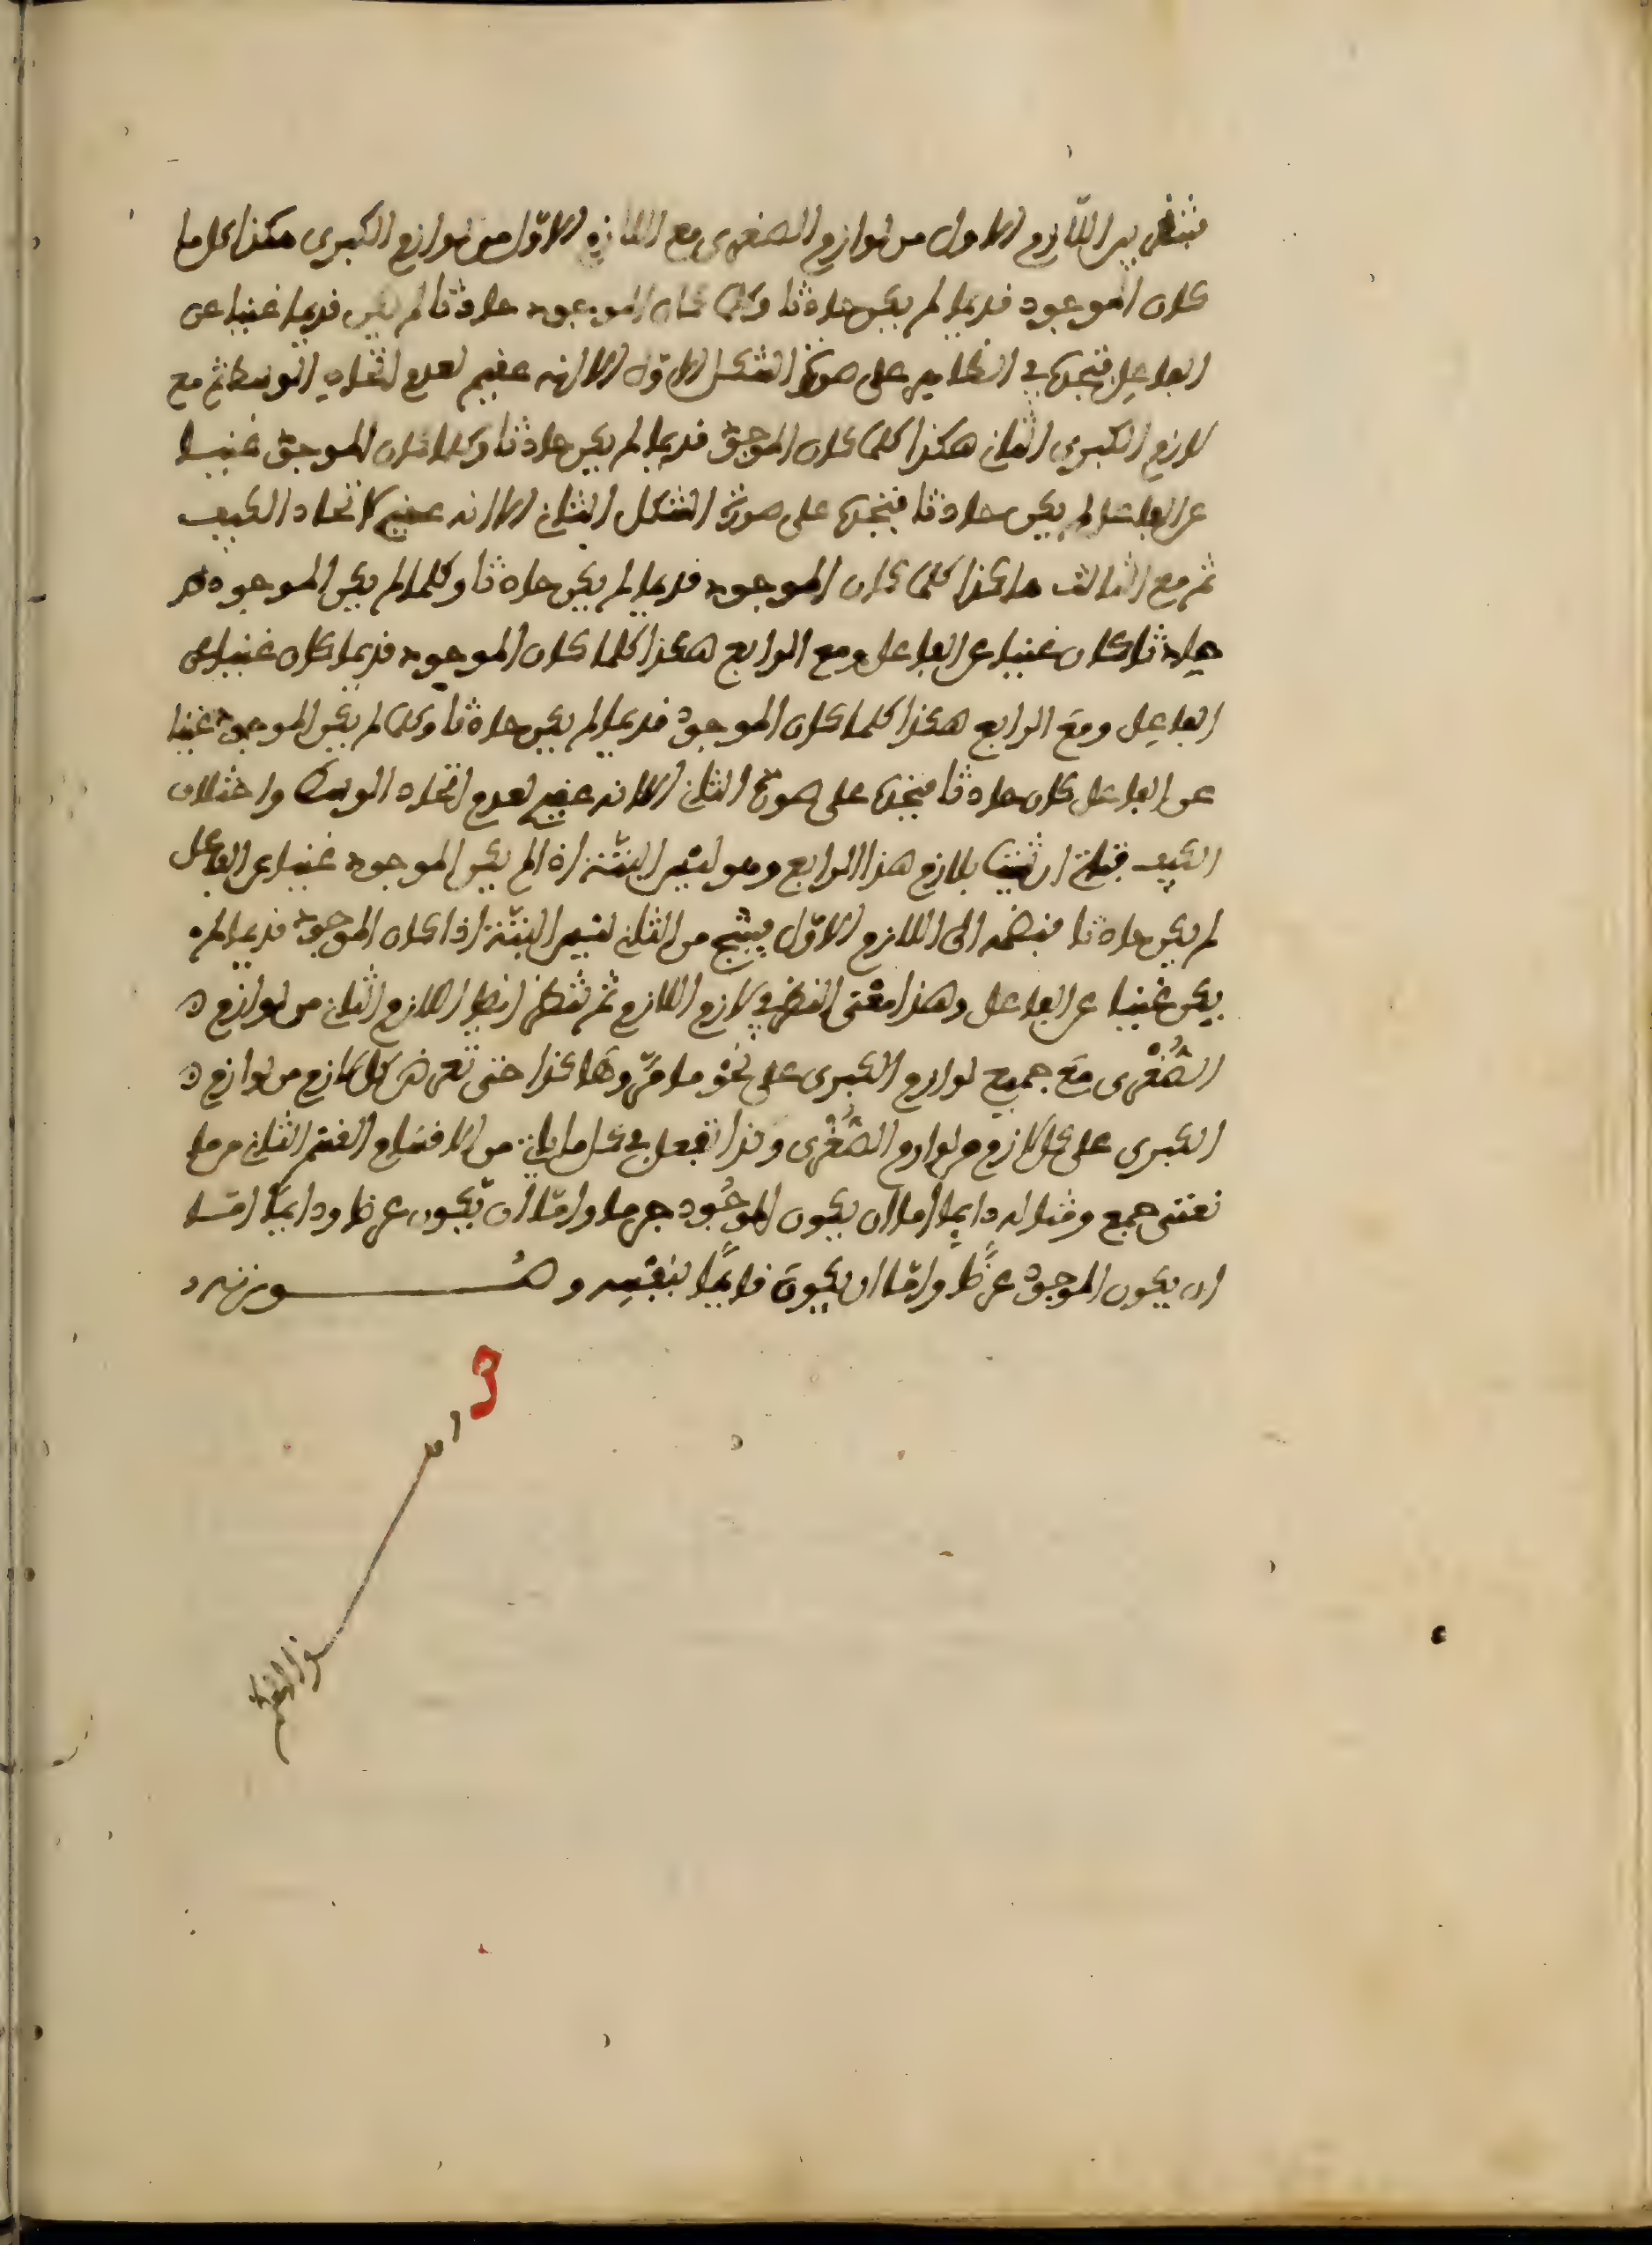 فتنظر بين اللازم الاول من لوازم الصغرى مع اللازم الاول من لوازم الكبرى هكذا كل ما
كان الموجود قديما لم يكن حادثا وكلما كان الموجود حادثا لم يكن قديما غنيا عن
الفاعل فتجدها في الظاهر على صورة الشكل الاول الا انه عقيم لعدم اتحاد الوسط ثم مع
لازم الكبرى الثاني هكذا كلما كان الموجود قديما لم يكن حادثا وكلما كان الموجود غنيا
عن الفاعل لم يكن حادثا فتجدها على صورة الشكل الثاني الا انه عقيم لاتحاد الكيف
ثم مع الثالث هاكذا كلما كان الموجود قديما لم يكن حادثا وكلما لم يكن الموجود
حادثا كان غنيا عن الفاعل ومع الرابع هكذا كلما كان الموجود قديما كان غنيا عن
الفاعل ومع الرابع هكذا كلما كان الموجود قديما لم يكن حادثا وكلما لم يكن الموجود غنيا
عن الفاعل كان حادثا فتجدها على صورة الثاني الا انه عقيم لعدم اتحاد الوسط واختلاف
الكيف فتاتي ان شئت بلازم هذا الرابع وهو ليس البتة اذا لم يكن الموجود غنيا عن الفاعل
لم يكن حادثا فتضمه الى اللازم الاول ينتج من الثاني ليس البتة اذا كان الموجود قديما لم
يكن غنيا عن الفاعل وهذا معنى النظر في لازم اللازم ثم تنظر ايضا اللازم الثاني من لوازم
الصغرى مع جميع لوازم الكبرى على نحو ما مر وهاكذا حتى تعرض كل لازم من لوازم
الكبرى على كل لازم من لوازم الصغرى وكذا تفعل في كل ما ياتي من الاقسام القسم الثاني من ما
نعتي جمع ومثاله دايما اما ان يكون الموجود جرما واما ان يكون عرضا ودايما اما
ان يكون الموجود عرضا واما ان يكون قايما بنفسه و